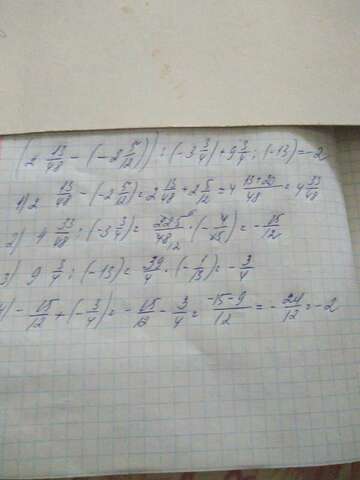 (2 13/48 - (-2 5/12)) : (-3 3/4) + 9 3/4 : (-13) = -2
1) 2 13/48 - (-2 5/12) = 2 13/48 + 2 5/12 = 4 13+20/48 = 4 33/48
2) 4 33/48 : (-3 3/4) = 225/48 12 · (-4/15) = -15/12
3) 9 3/4 : (-13) = 39/4 · (-1/13) = -3/4
4) -15/12 + (-3/4) = -15/12 - 3/4 = -15-9/12 = -24/12 = -2